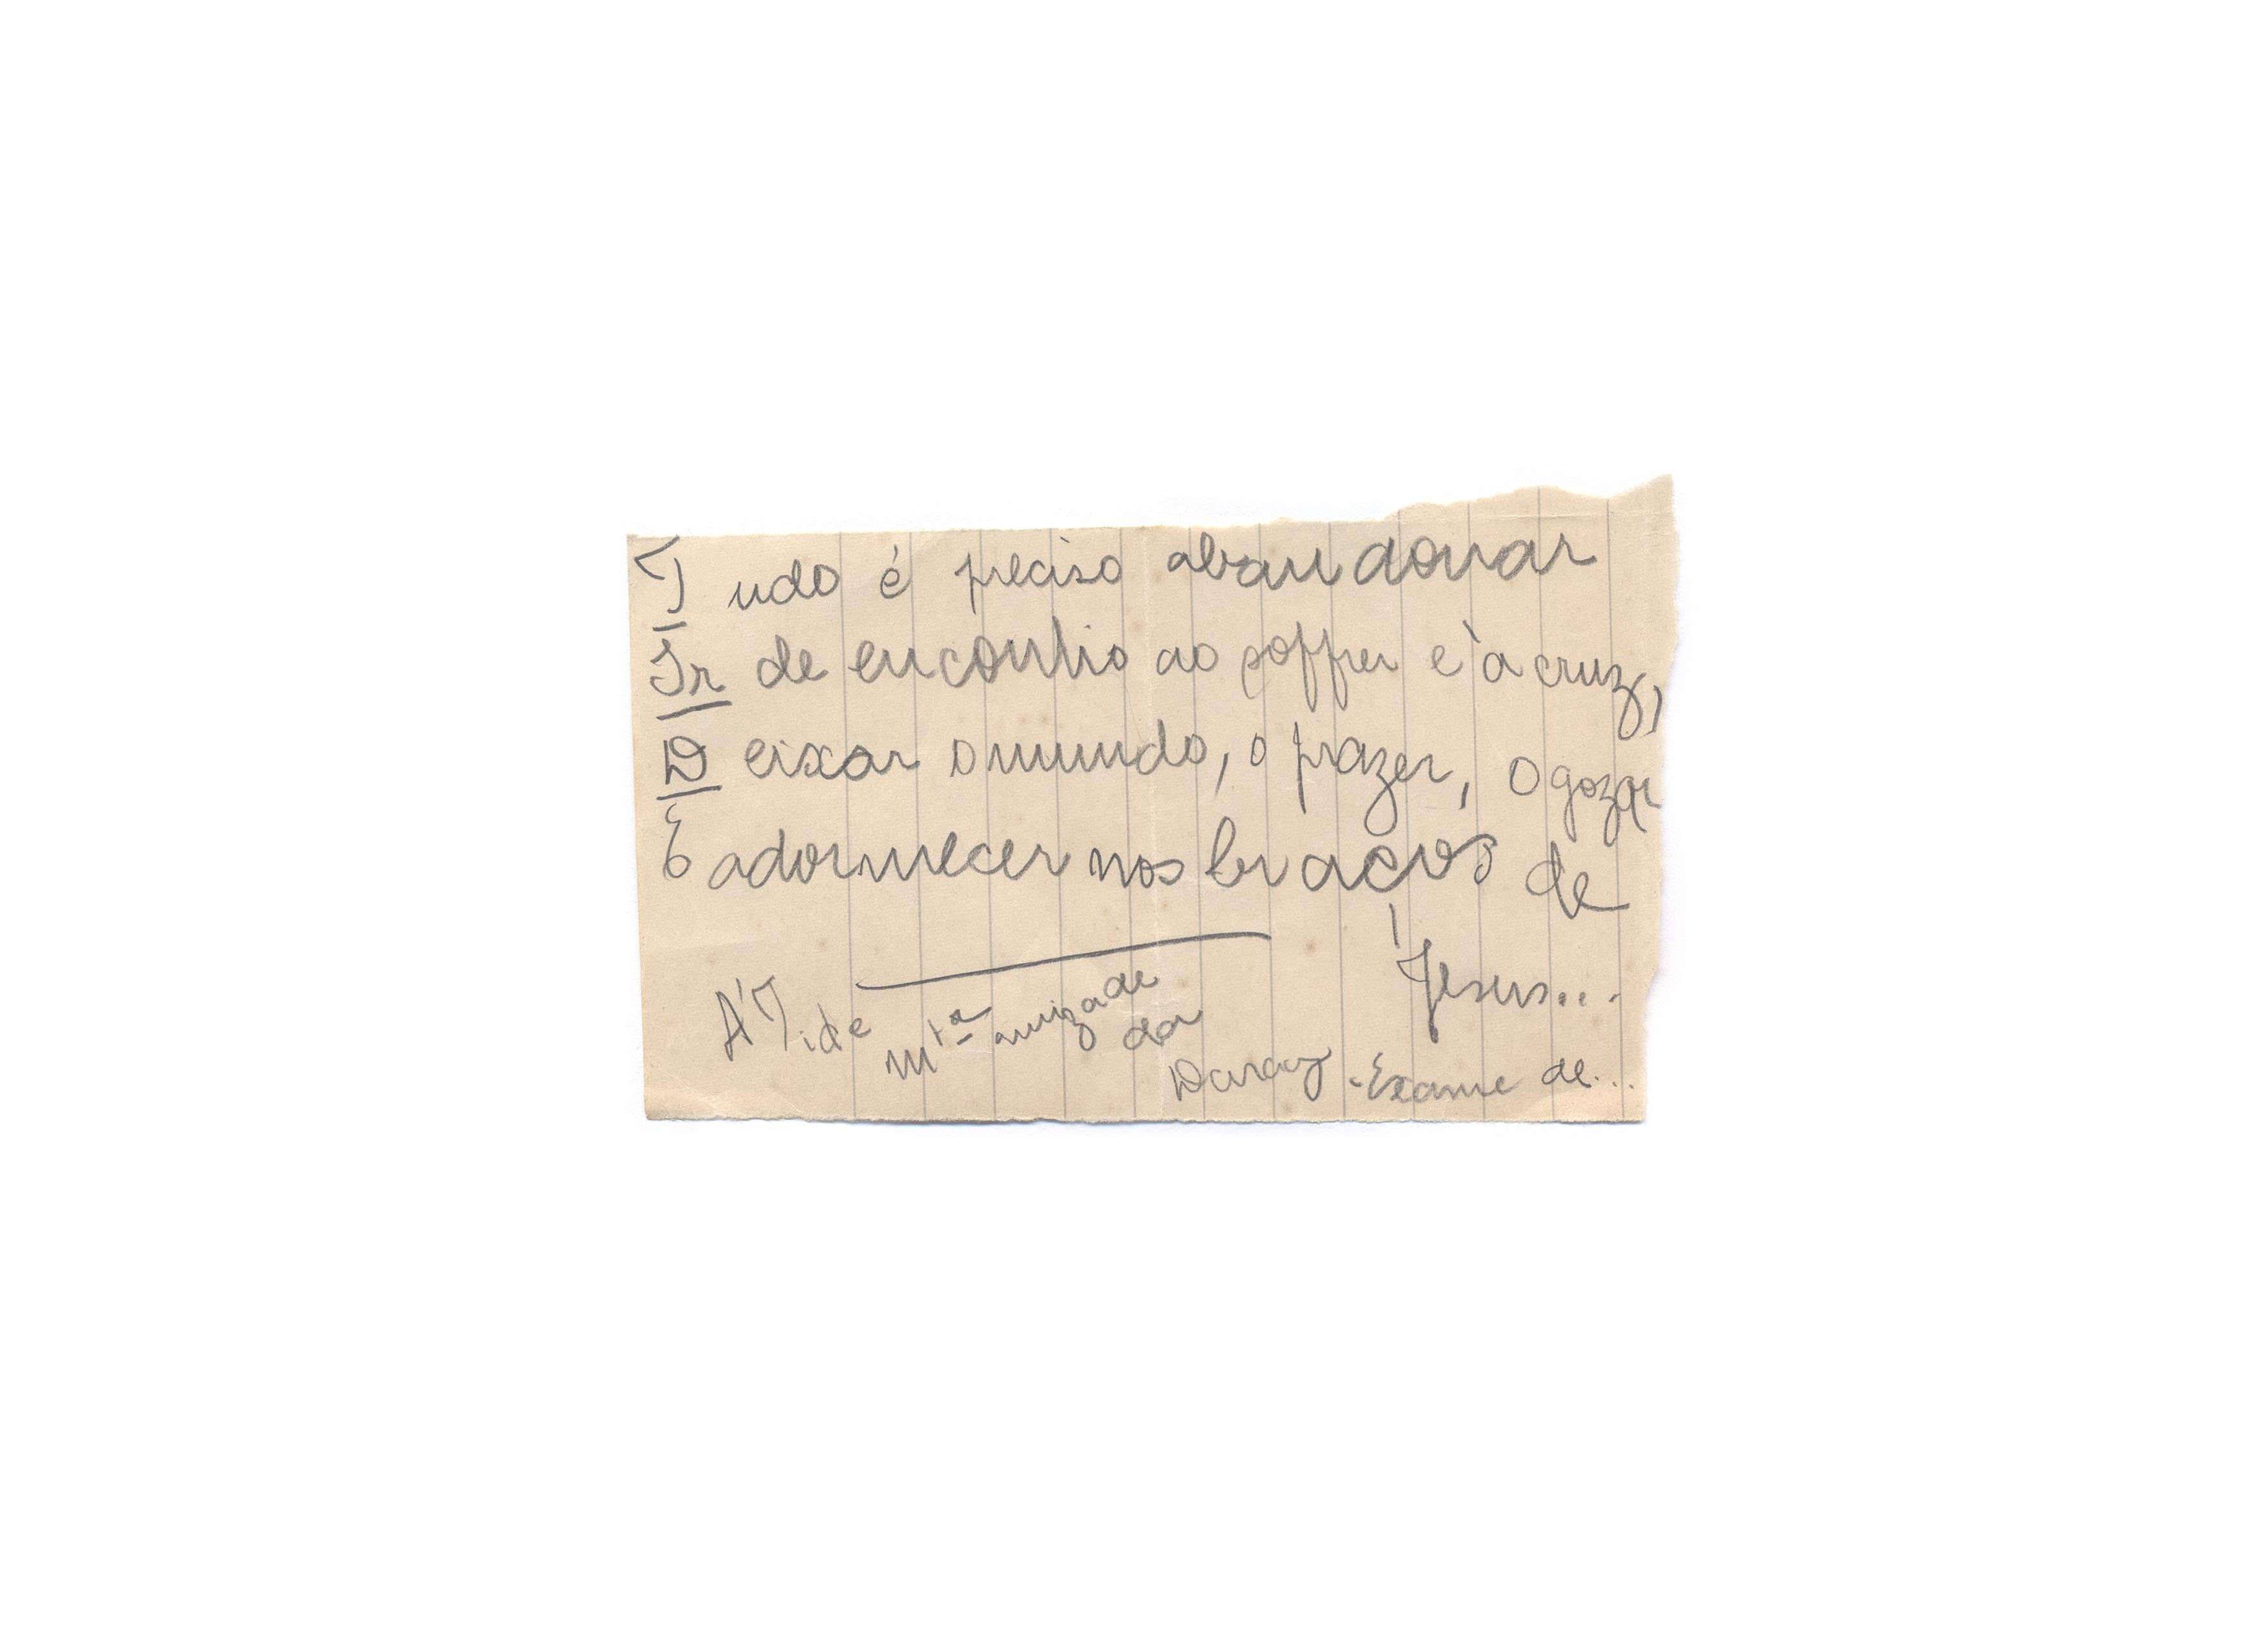 Tudo é preciso abandonar
Ir de encontro ao soffrer e à cruz,
Deixar o mundo, o prazer, o gozar
E adormecer nos braços de
Jesus...
A' Tide
mta amizade
da
Exame de...